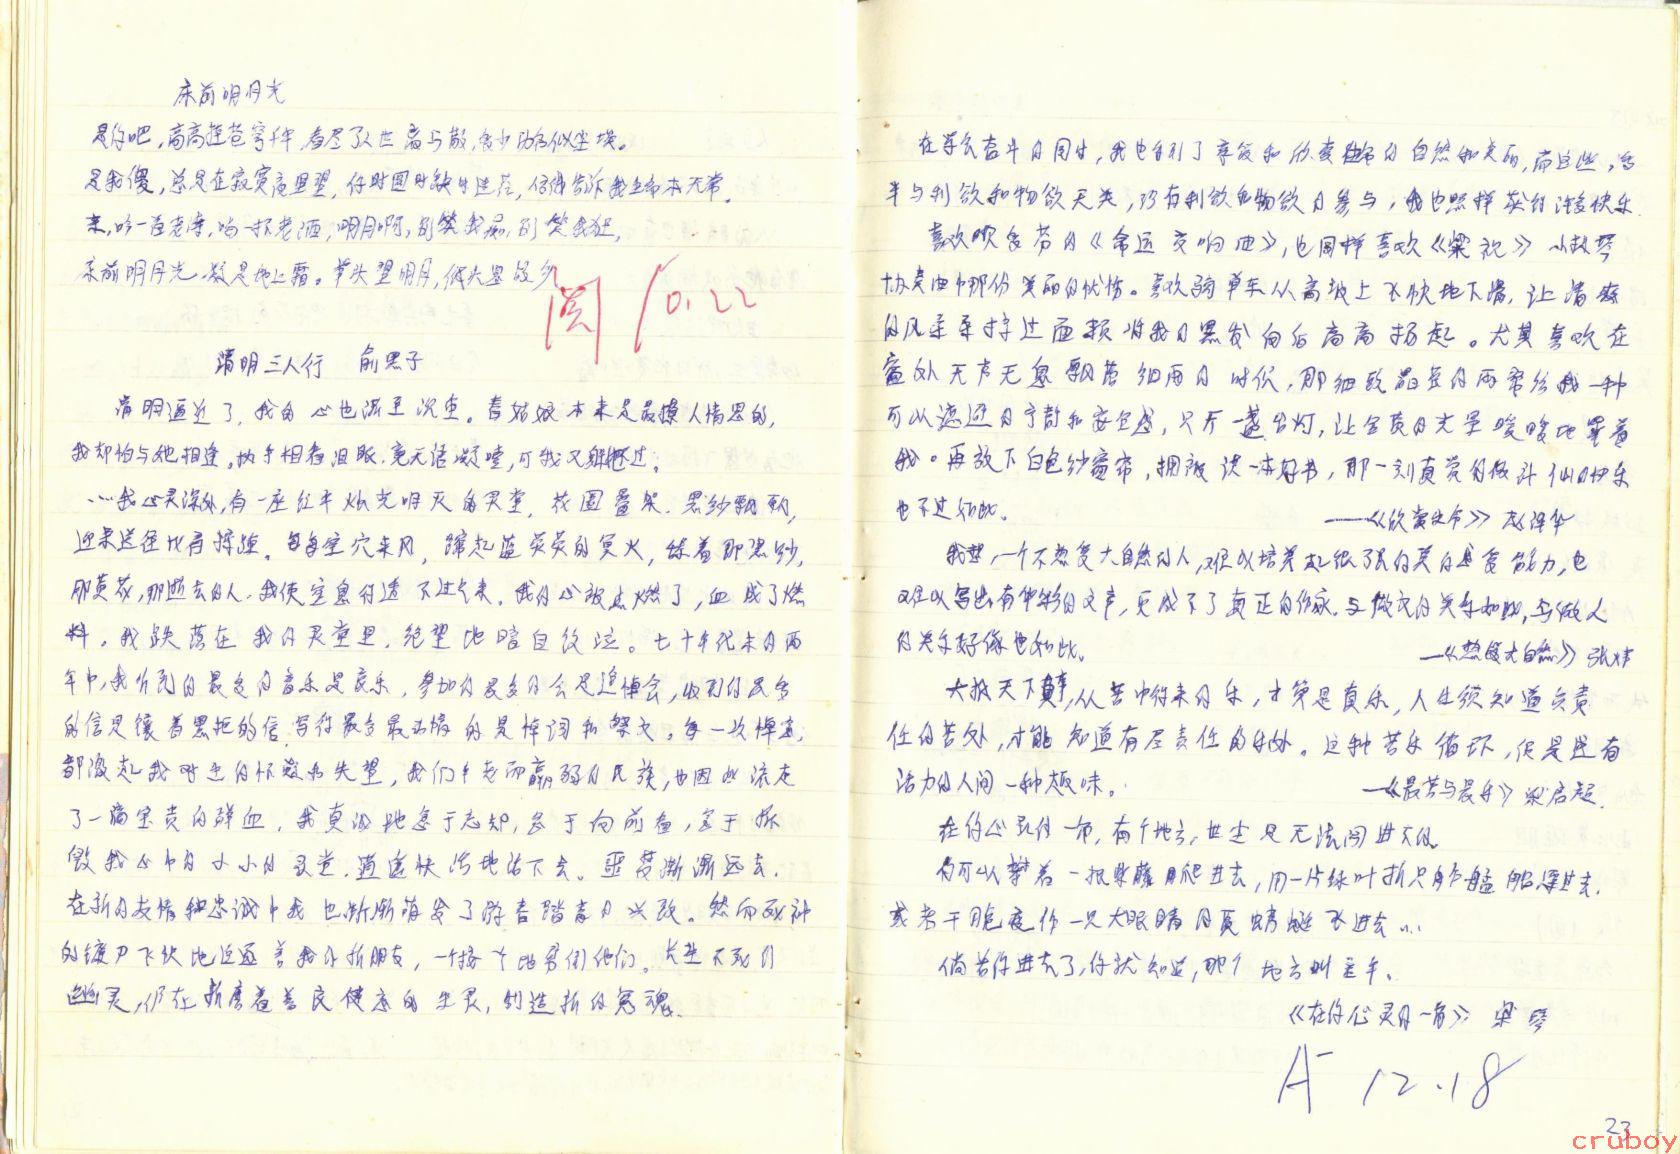 床前明月光
是你吧，高高挂苍穹千年，看尽了人世离与散，多少功名似尘埃。
是我傻，总是在寂寞夜里望，你时圆时缺时迷茫，仿佛告诉我生命本无常。
来，吟一首老诗，喝一杯老酒，明月啊，别笑我痴，别笑我狂，
床前明月光 疑是地上霜。举头望明月，低头思故乡
阅 10.22
清明三人行 俞黑子
清明逼近了，我的心也湿至沉重。春姑娘本来是最撩人情思的，
我却怕与她相逢，执手相看泪眼，竟无语凝噎，可我又躲不过。
…我心灵深处，有一座红半灿光明灭的灵堂，花圈叠架，黑纱飘飘，
迎来送往比肩接踵。每每空穴来风，蹿起蓝荧荧的冥火，绿着那黑纱，
那黄花，那逝去的人，我使窒息得透不过气来。我的心被点燃了，血成了燃
料。我跌落在我的灵堂里，绝望地暗自饮泣。七十年代末的两
年中，我听到的最多的音乐是哀乐，参加的最多的会是追悼会，收到的最多
的信是镶着黑框的信，写得最多最动情的是悼词和祭文。每一次悼志，
都激起我对生的怀疑和失望，我们年老而羸弱的民族，也因此流走
了一滴宝贵的鲜血。我真诚地急于忘却，急于向前看，急于拆
毁我心中的小小的灵堂，逍遥快活地活下去。噩梦渐渐远去，
在新的友情和忠诚中我也渐渐萌发了游春踏青的兴致。然而死神
的镰刀飞快地追逐着我的新朋友，一个接一个地男倒他们。长生不死的
幽灵，仍在折磨着善良健忘的生灵，制造新的冤魂。
在学会奋斗的同时，我也学到了享受和欣赏独有的自然和美丽，而这些，多
半与利欲和物欲无关，没有利欲和物欲的参与，我也照样获得许多快乐
喜欢贝多芬的《命运交响曲》，也同样喜欢《梁祝》小提琴
协奏曲中那份美丽的忧伤。喜欢骑单车从高坡上飞快地下滑，让清爽
的风柔柔拂过面颊 将我的黑发向后高高扬起。尤其喜欢在
窗外无声无息飘着细雨的时候，那细致晶莹的雨帘给我一种
可以遮避的宁静和安全感，只开一盏台灯，让金黄的光晕暖暖地罩着
我。再放下白色纱窗帘，拥被读一本好书，那一刻真觉得做什仙的快乐
也不过如此。 ——《欣赏生命》赵泽华
我想，一个不热爱大自然的人，难以培养起很强的美的感受能力，也
难以写出有华彩的文章，更成不了真正的作家。与做文的关系如此，与做人
的关系好像也如此。 —《热爱大自然》张炜
大抵天下事，从苦中得来的乐，才算是真乐，人生须知道负责
任的苦处，才能知道有尽责任的乐处。这种苦乐循环，便是这有
活力的人间一种趣味。 —《最苦与最乐》梁启超
在你心灵的一角，有个地方，世尘是无法闯进去的。
你可以攀着一根紫藤爬进去，用一片绿叶折只舟艋船漂进去，
或者干脆变作一只大眼睛的夏蜻蜓飞进去…
倘若你进去了，你就知道，那个地方叫童年。
《在你心灵的一角》 梁琴
A⁻ 12.18
23
cruboy